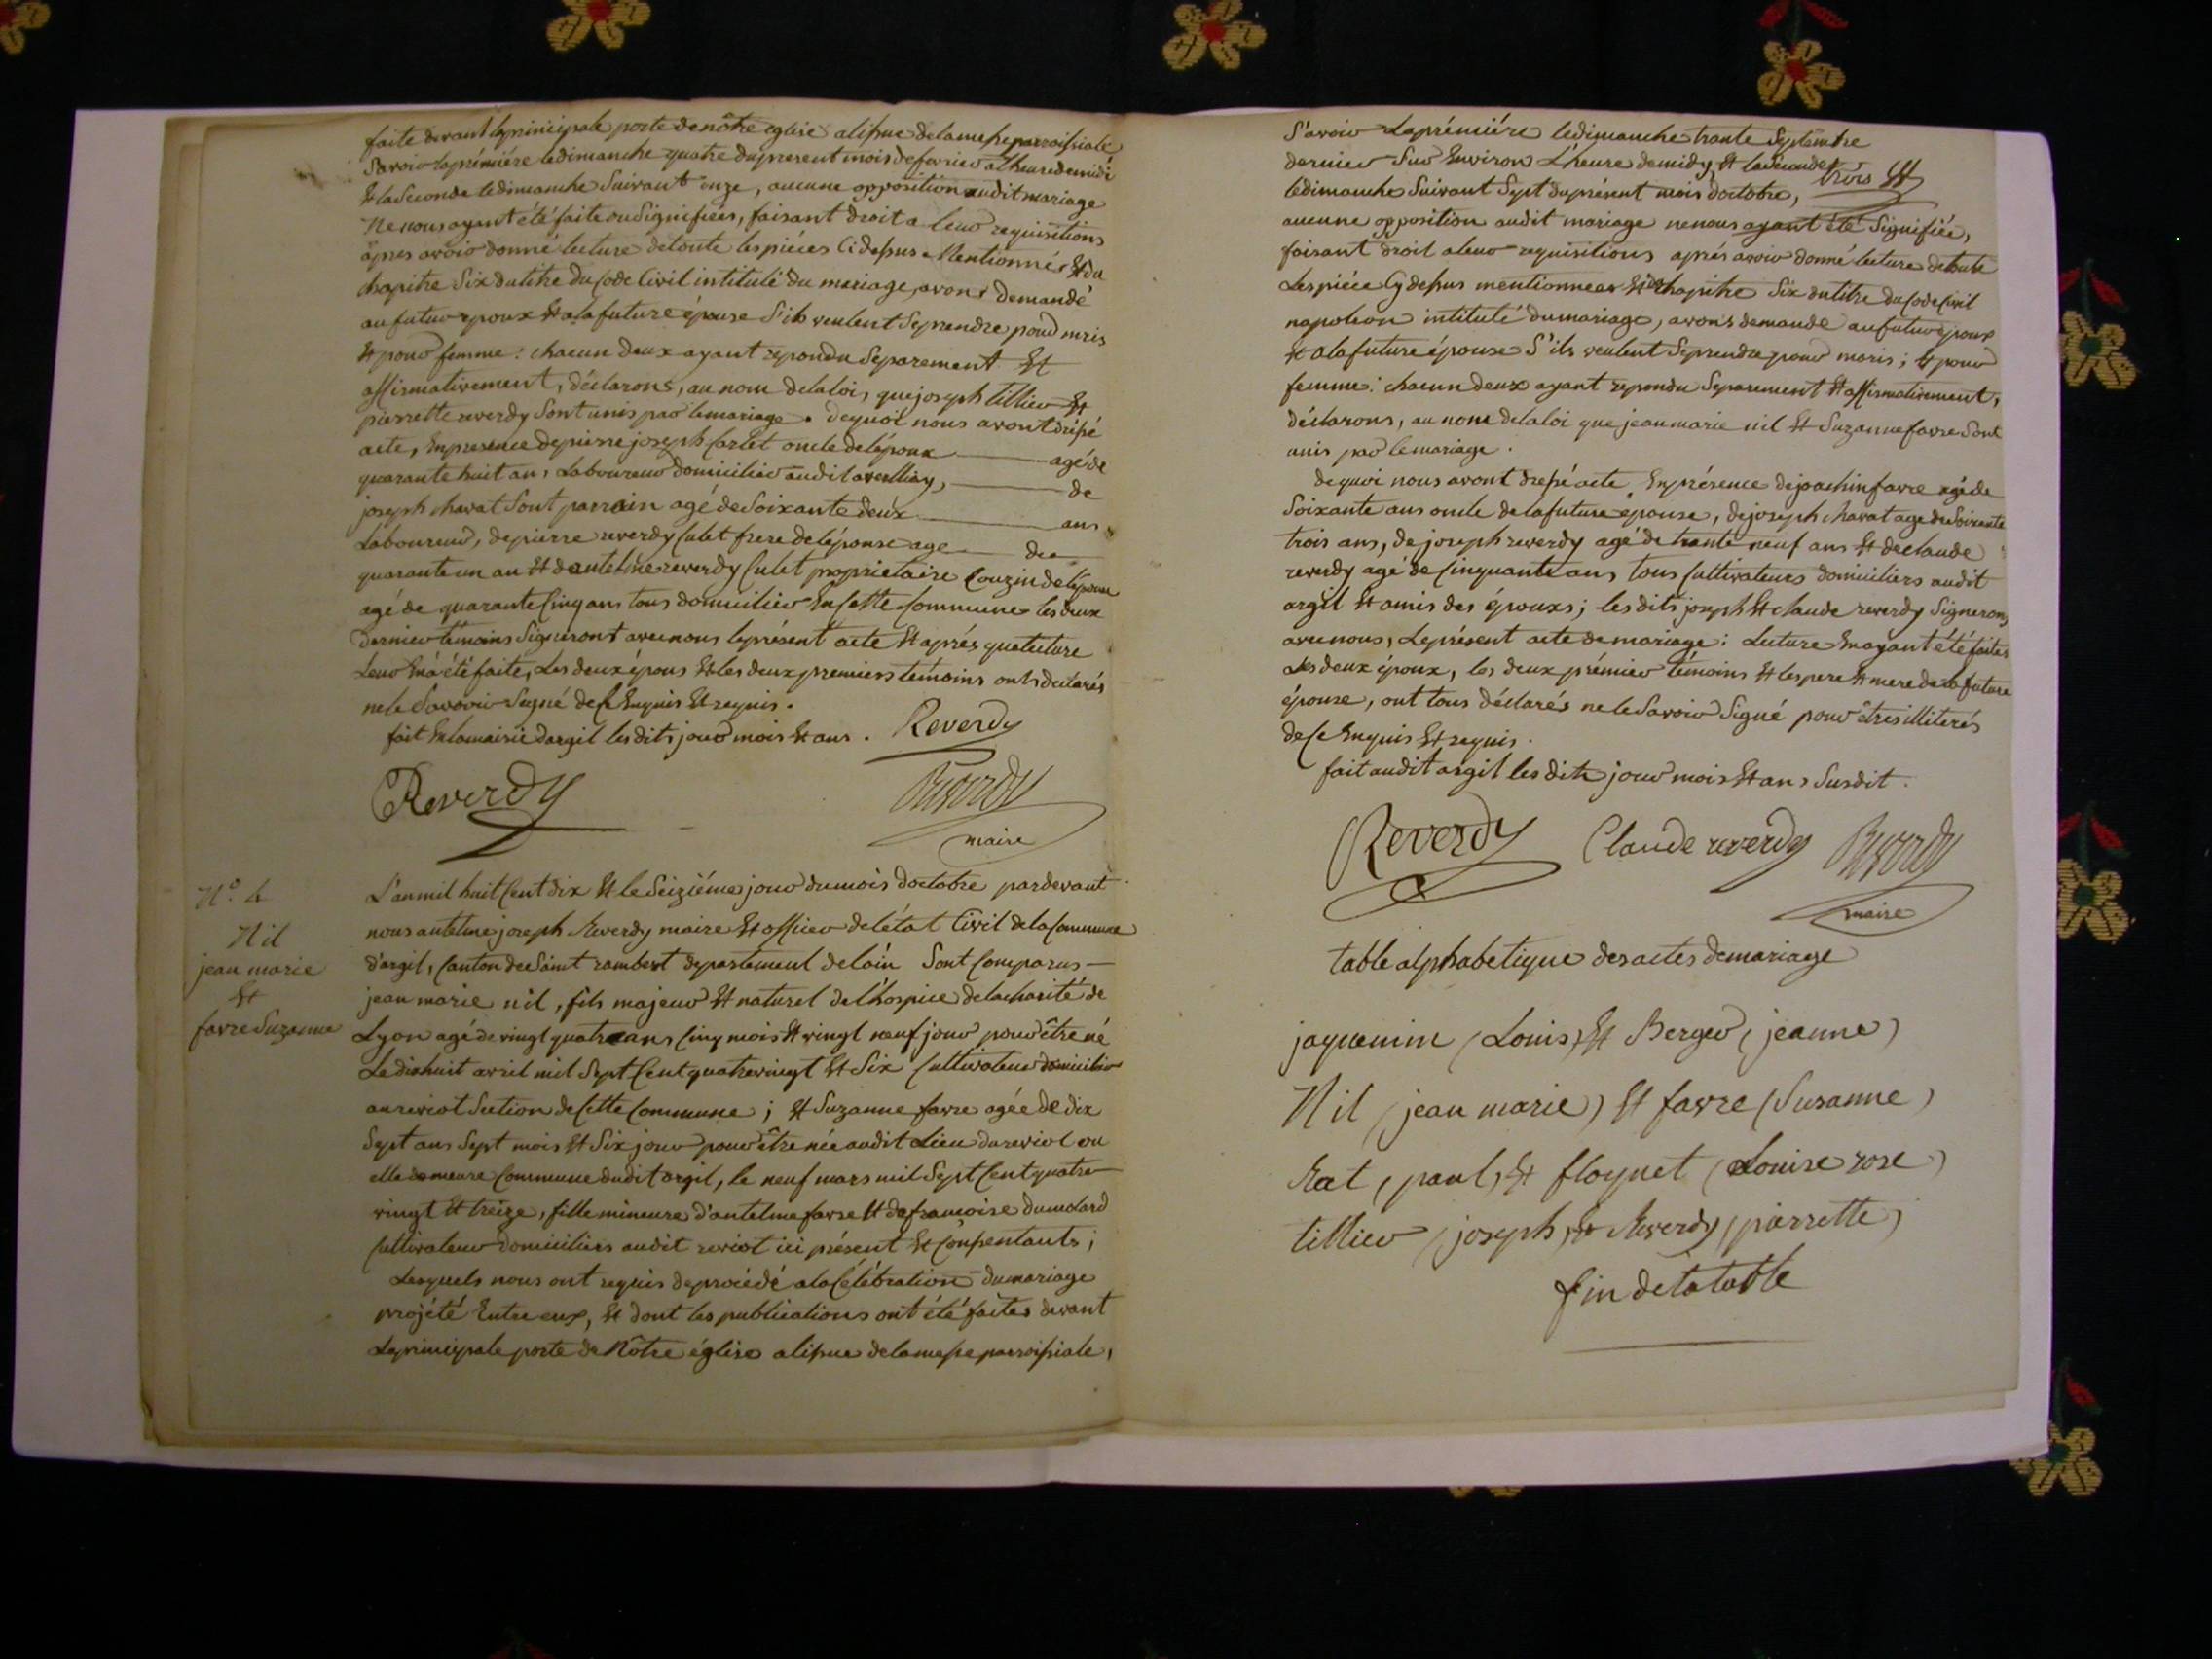 faite devant la principale porte de nôtre eglise a lissue de la messe parroissiale
Savoir la prémiére le dimanche quatre du present mois de fevrier a lheure de midi
Et la Seconde le dimanche Suivant onze, aucune opposition audit mariage
Ne nous ayant été faite ou Signifiées, faisant droit a leur requisitions
apres avoir donné lecture de toute les piéces Ci dessus Mentionnés Et du
chapitre Six du titre du Code Civil intitulé du mariage, avons demandé
au futur epoux Et a la future épouse S'ils veulent Se prendre pour mris
Et pour femme : chacun deux ayant repondu Separement Et
affirmativement, déclarons, au nom de la loi, que joseph tillier Et
pierrette reverdy Sont unis par le mariage. de quoi nous avont dréssé
acte, En presence de pierre joseph Carlet oncle de lépoux agé de
quarante huit ans Laboureur domicilier audit averlliay, de
joseph chavat Sont parrain agé de Soixante deux ans
Laboureur, de pierre reverdy Culet frere de lépouse age de
quarante un an Et dantelme reverdy Culet proprietaire Couzin de lépouse
agé de quarante Cinq ans tous domicilier En Cette Commune les deux
Dernier témoins Signeront avec nous le présent acte Et aprés que lecture
Leur En a été faite, Les deux épous Et les deux premiers témoins ont déclarés
ne le Savoir Signé de Ce Enquis Et requis.
fait En la mairie dargil les dits jour mois Et ans. Reverdy
Reverdy Reverdy
maire
N.º 4
Nil
jean marie
Et
favre Suzanne
L'an mil huit Cent dix Et le Seiziéme jour du mois doctobre pardevant
nous antelme joseph Reverdy maire Et officier de létat Civil de la Commune
d'argil, Canton de Saint rambert departement de lain Sont Comparus
jean marie nil, fils majeur Et naturel de l'hospice de la charité de
Lyon agé de vingt quatre ans Cinq mois Et vingt neuf jour pour être né
Le dixhuit avril mil Sept Cent quatrevingt Et Six Cultivateur domicilier
au reviot Section de Cette Commune ; Et Suzanne favre agée de dix
Sept ans Sept mois Et Six jour pour être née audit Lieu du reviot ou
elle demeure Commune dudit argil, le neuf mars mil Sept Cent quatre
vingt Et treize, fille mineure d'antelme favre Et de francoise dumolard
Cultivateur domiciliers audit reviot ici présent Et Consentants ;
Lesquels nous ont requis de procédé a la Célébration du mariage
projété Entre eux, Et dont les publications ont été faites devant
La principale porte de Nôtre église a lissue de la messe parroissiale,
S'avoir La prémiére le dimanche trante Septembre
dernier Sur Environ L'heure de midy, Et la Seconde
le dimanche Suivant Sept du présent mois doctobre,
aucune opposition audit mariage ne nous ayant été Signifiée,
faisant droit a leur requisitions aprés avoir donné lecture de toute
Les piéce Cy dessus mentionnees Et du chapitre Six du titre du Code Civil
napoleon intitulé du mariage, avons demandé au futur époux
Et a la future épouse S'ils veulent Se prendre pour maris ; Et pour
femme : chacun deux ayant repondu Separement Et affirmativement,
déclarons, au nom de la loi que jean marie nil Et Suzanne favre Sont
unis par le mariage.
de quoi nous avont dressé acte En présence de joachin favre agé de
Soixante ans oncle de la future épouse, de joseph chavat age de Soixante
trois ans, de joseph reverdy agé de trante neuf ans Et de claude
reverdy agé de Cinquante ans tous Cultivateurs domiciliers audit
argil Et amis des épouxs ; les dits joseph Et claude reverdy Signerons
avec nous, Le présent acte de mariage : Lecture En ayant été faites
Les deux époux, les deux prémier témoins Et les pere Et mere de la future
épouse, ont tous déclarés ne le Savoir Signé pour êtres illiterés
de Ce Enquis Et requis.
fait audit argil les dits jour mois Et ans Susdit.
Reverdy Claude reverdy Reverdy
maire
table alphabetique des actes de mariage
jaquemin (Louis) Et Berger (jeanne)
Nil (jean marie) Et favre (Susanne)
Rat (paul) Et floquet (Louise rose)
tillier (joseph) Et Reverdy (pierrette)
fin de la table